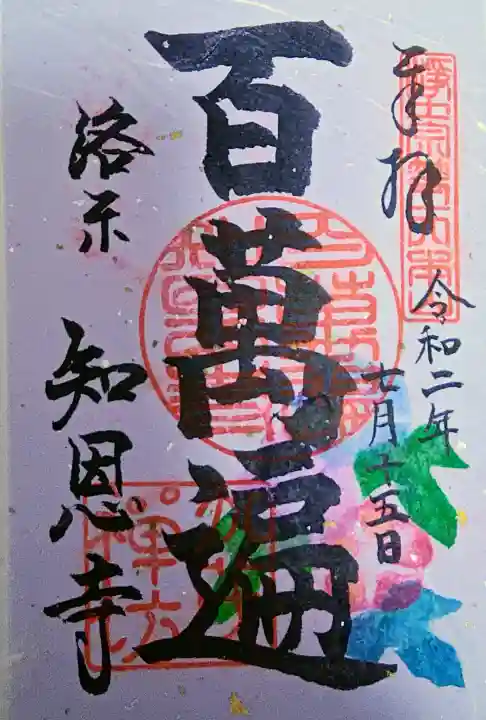 奉拝
令和二年
七月十五日
百萬遍
洛東
知恩寺